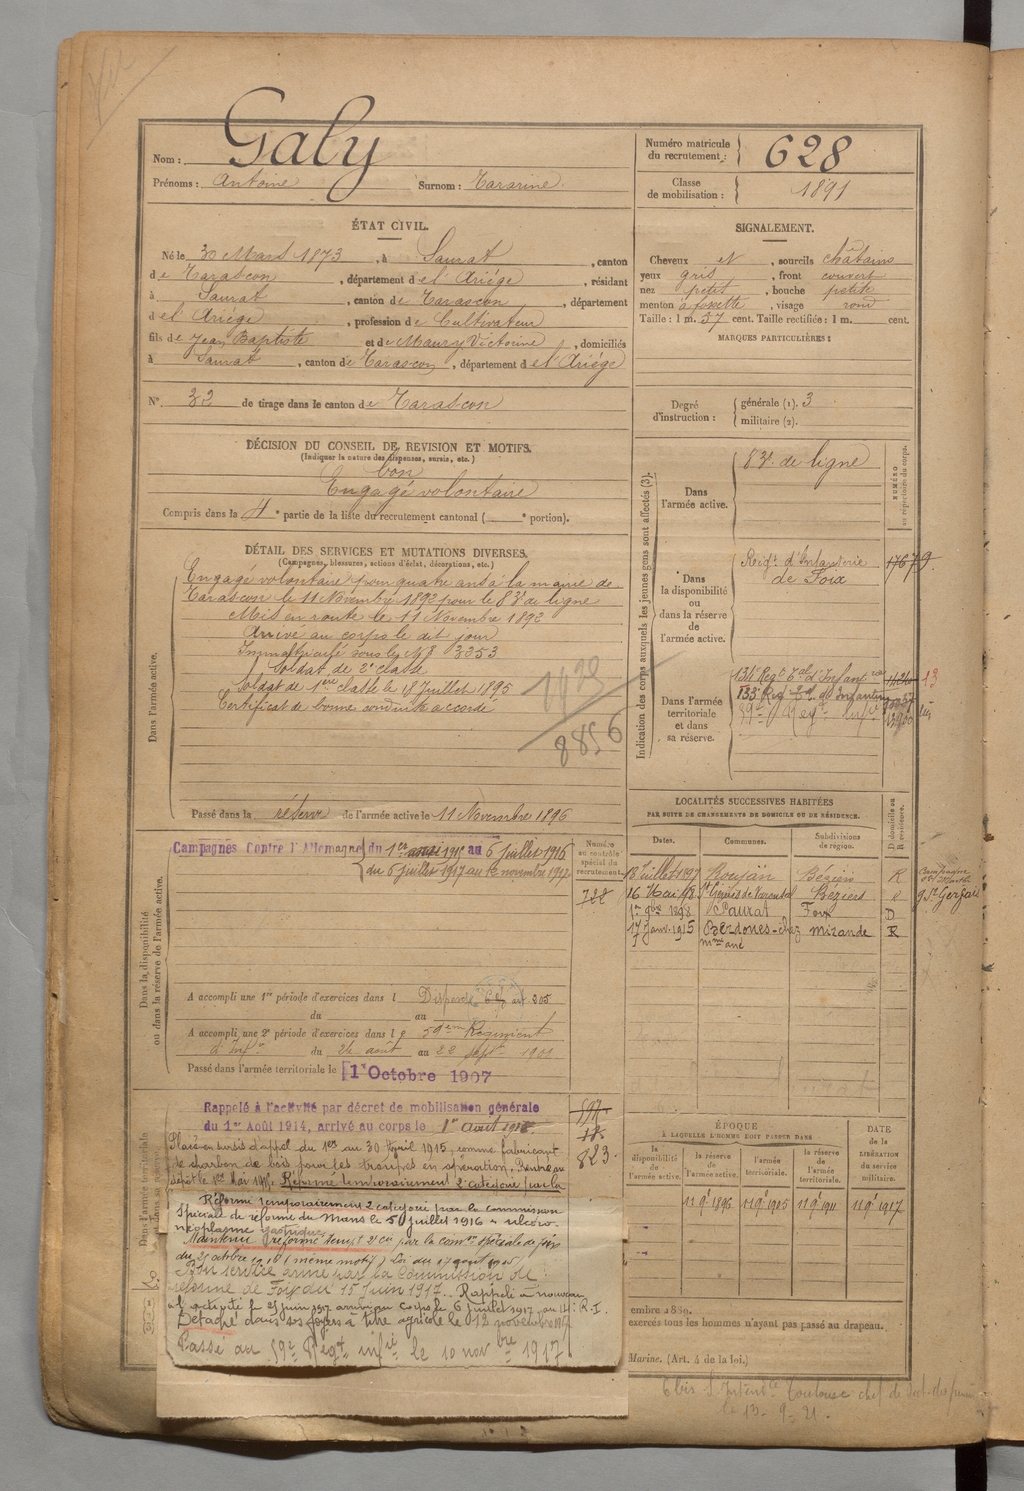 Nom : Galy
Prénoms : Antoine Surnom : Tararine.
Numéro matricule du recrutement : 628
Classe de mobilisation : 1891
ÉTAT CIVIL.
Né le 30 Mars 1873, à Saurat, canton
de Tarascon, département de l'Ariége, résidant
à Saurat, canton de Tarascon, département
de l'Ariége, profession de Cultivateur
fils de Jean Baptiste et de Maury Victorine, domiciliés
à Saurat, canton de Tarascon, département de l'Ariége
N° 32 de tirage dans le canton de Tarascon
SIGNALEMENT.
Cheveux et, sourcils châtains
yeux gris, front couvert
nez petit, bouche petite
menton à fossette, visage rond
Taille : 1 m. 57 cent. Taille rectifiée : 1 m. cent.
MARQUES PARTICULIÈRES :
Degré d'instruction : générale (1). 3
militaire (2).
DÉCISION DU CONSEIL DE REVISION ET MOTIFS.
(Indiquer la nature des dispenses, sursis, etc.)
bon
Engagé volontaire
Compris dans la 4e partie de la liste du recrutement cantonal ( e portion).
DÉTAIL DES SERVICES ET MUTATIONS DIVERSES.
(Campagnes, blessures, actions d'éclat, décorations, etc.)
Dans l'armée active.
Engagé volontaire pour quatre ans à la mairie de
Tarascon le 11 Novembre 1892 pour le 83e de ligne
Mis en route le 11 Novembre 1892
Arrivé au corps le dit jour
Immatriculé sous le N° 3353
Soldat de 2e classe
Soldat de 1ère classe le 18 Juillet 1895
Certificat de bonne conduite accordé
1423
8856
Passé dans la réserve de l'armée active le 11 Novembre 1896
Indication des corps auxquels les jeunes gens sont affectés (3).
NUMÉRO au répertoire du corps.
Dans l'armée active.
83e de ligne
Dans la disponibilité ou dans la réserve de l'armée active.
Régt. d'Infanterie
de Foix
Dans l'armée territoriale et dans sa réserve.
134e Régt Tal d'Infanterie
13
LOCALITÉS SUCCESSIVES HABITÉES
PAR SUITE DE CHANGEMENTS DE DOMICILE OU DE RÉSIDENCE.
Dates. Communes. Subdivisions de région. D domicile ou R résidence.
18 Juillet 1897 Roujan Béziers R
16 Mai 98 Béziers
1er 9bre 1898 Saurat Foix D
17 Janv. 1915 Berdoues-chez Mirande R
Dans la disponibilité ou dans la réserve de l'armée active.
Campagnes Contre l'Allemagne du 1915 au 6 juillet 1916
du 6 juillet 1917 au 12 novembre 1917
Numéro au contrôle spécial du recrutement.
738
A accompli une 1re période d'exercices dans l Dispensé art 205
du au
A accompli une 2e période d'exercices dans le 59ème Régiment
d'Infie du 26 août au 22 septe 1901
Passé dans l'armée territoriale le 1er Octobre 1907
Rappelé à l'activité par décret de mobilisation générale
du 1er Août 1914, arrivé au corps le
823.
Placé en sursis d'appel du 1er au 30 Avril 1915, comme fabricant
de charbon de bois pour les troupes en opération. Rentré au
dépôt le 1er Mai 1915. Réformé temporairement 2e catégorie par la
Réformé temporairement 2 catégorie par la commission
spéciale de réforme du Mans le 5 juillet 1916
néoplasme gastrique
Maintenu réformé temp. 2e par la comon spéciale de Foix
du 21 octobre (même motif) Loi du 17 août 1915
Bon service armé par la Commission de
réforme de Foix du 15 Juin 1917. Rappelé à nouveau
à l'activité le arrivé au corps le 6 juillet 1917 au R.I.
Détaché dans ses foyers à titre agricole le 12 novembre 1917
Passé au 59e Régt infie le 10 novbre 1917
ÉPOQUE
À LAQUELLE L'HOMME DOIT PASSER DANS
DATE de la LIBÉRATION du service militaire.
la disponibilité de l'armée active. la réserve de l'armée active. l'armée territoriale. la réserve de l'armée territoriale.
11 9e 1896 11 9e 1905 11 9e 1911 11 9e 1917
embre 1889.
exercés tous les hommes n'ayant pas passé au drapeau.
Marine. (Art. 4 de la loi.)
le 13-9-21.